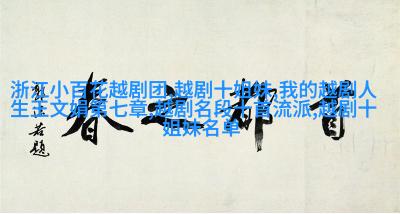 浙江小百花越剧团,越剧十姐妹,我的越剧人
生王文娟第七章,越剧名段十首流派,越剧十
姐妹名单
首都之春
郭沫若题